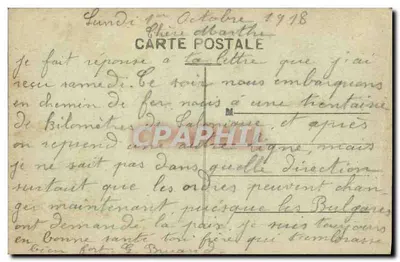 Lundi 1er Octobre 1918
Chère Marthe
CARTE POSTALE
je fait réponse à ta lettre que j'ai
reçu samedi. Ce soir nous embarquons
en chemin de fer nous a une trentaine
M
de kilomètres de Salonique et après
CPARAMA
on reprend un autre ligne, mais
je ne sait pas dans quelle direction
surtout que les ordres peuvent chan
ger maintenant puisque les Bulgares
ont demandé la paix, je suis toujours
en bonne santé ton frère qui t'embrasse
bien fort G.